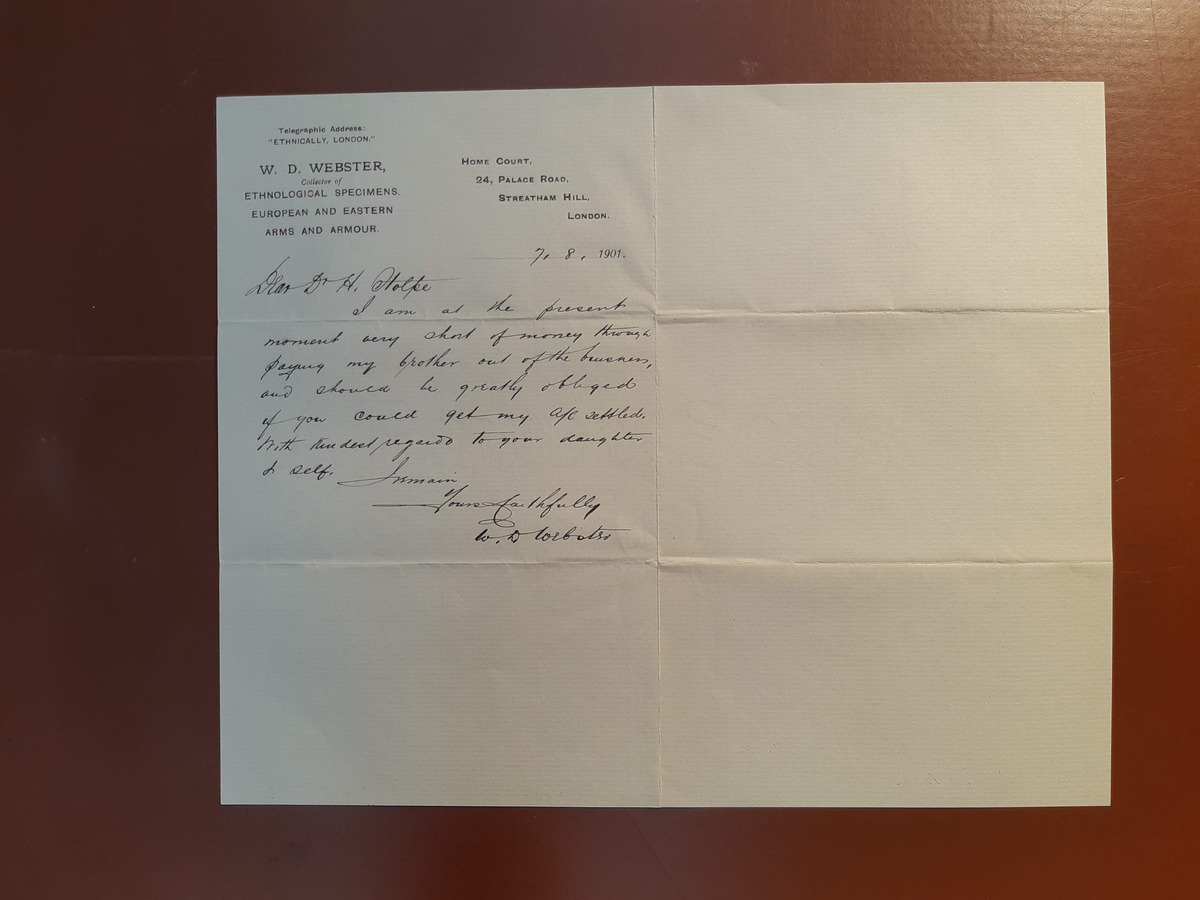 Telegraphic Address:
"ETHNICALLY, LONDON."
W. D. WEBSTER,
Collector of
ETHNOLOGICAL SPECIMENS.
EUROPEAN AND EASTERN
ARMS AND ARMOUR.
HOME COURT,
24, PALACE ROAD,
STREATHAM HILL,
LONDON.
7. 8. 1901.
Dear Dr H. Stolpe
I am at the present
moment very short of money through
paying my brother out of the business,
and should be greatly obliged
if you could get my a/c settled.
With kindest regards to your daughter
& self. I remain
Yours Faithfully
W. D Webster